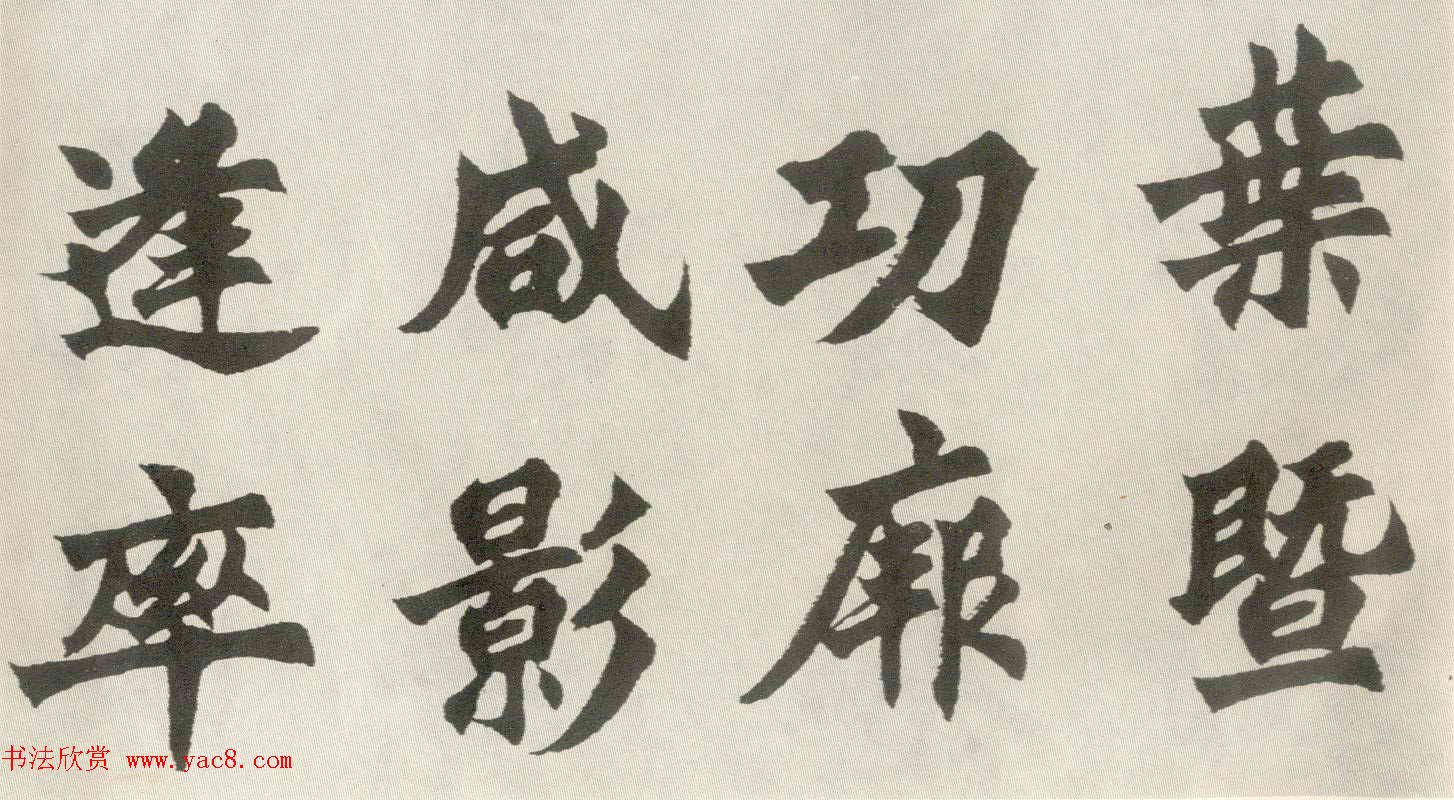 葉暨
功
咸影
逢率
书法欣赏 www.yac8.com